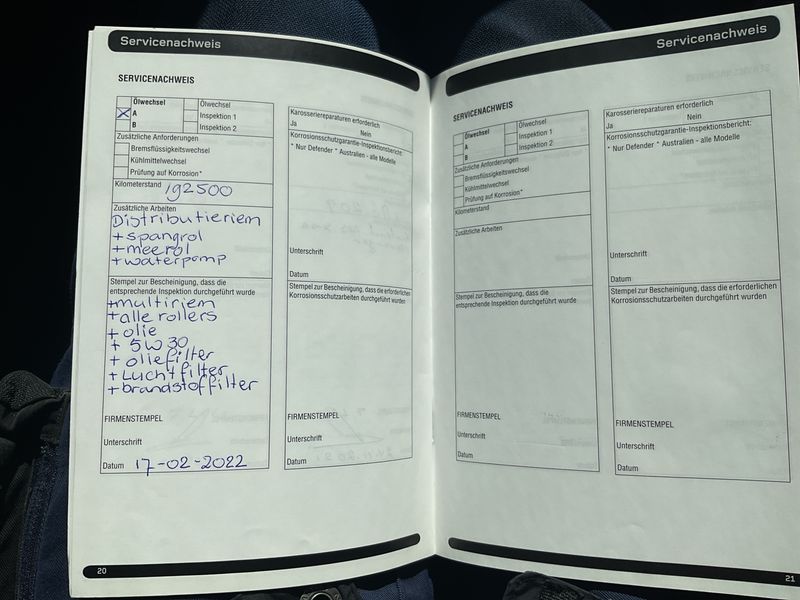 Servicenachweis
SERVICENACHWEIS
Ölwechsel
A
B
Ölwechsel
Inspektion 1
Inspektion 2
Zusätzliche Anforderungen
Bremsflüssigkeitswechsel
Kühlmittelwechsel
Prüfung auf Korrosion*
Kilometerstand 192500
Zusätzliche Arbeiten
Distributieriem
+ spangrol
+ meerol
+ waterpomp
Stempel zur Bescheinigung, dass die
entsprechende Inspektion durchgeführt wurde
+ multiriem
+ alle rollers
+ olie
+ 5W30
+ oliefilter
+ Luchtfilter
+ brandstoffilter
FIRMENSTEMPEL
Unterschrift
Datum 17-02-2022
Karosseriereparaturen erforderlich
Ja Nein
Korrosionsschutzgarantie-Inspektionsbericht:
* Nur Defender * Australien - alle Modelle
Unterschrift
Datum
Stempel zur Bescheinigung, dass die erforderlichen
Korrosionsschutzarbeiten durchgeführt wurden
FIRMENSTEMPEL
Unterschrift
Datum
20
Servicenachweis
SERVICENACHWEIS
Ölwechsel
A
B
Ölwechsel
Inspektion 1
Inspektion 2
Zusätzliche Anforderungen
Bremsflüssigkeitswechsel
Kühlmittelwechsel
Prüfung auf Korrosion*
Kilometerstand
Zusätzliche Arbeiten
Stempel zur Bescheinigung, dass die
entsprechende Inspektion durchgeführt wurde
FIRMENSTEMPEL
Unterschrift
Datum
Karosseriereparaturen erforderlich
Ja Nein
Korrosionsschutzgarantie-Inspektionsbericht:
* Nur Defender * Australien - alle Modelle
Unterschrift
Datum
Stempel zur Bescheinigung, dass die erforderlichen
Korrosionsschutzarbeiten durchgeführt wurden
FIRMENSTEMPEL
Unterschrift
Datum
21